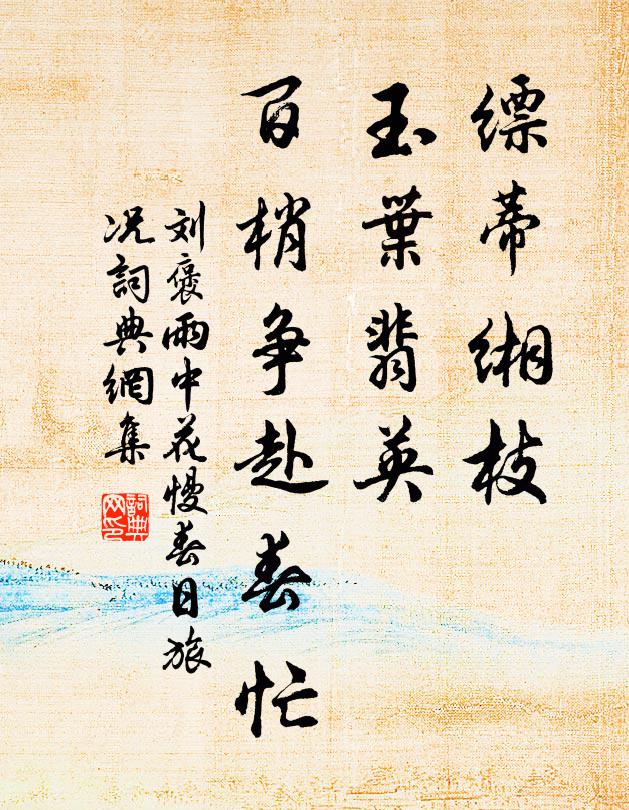 缥蒂缃枝
玉葉翡英
百梢争赴春忙
刘褒雨中花慢春日旅
况詞典網集
詞典
网印